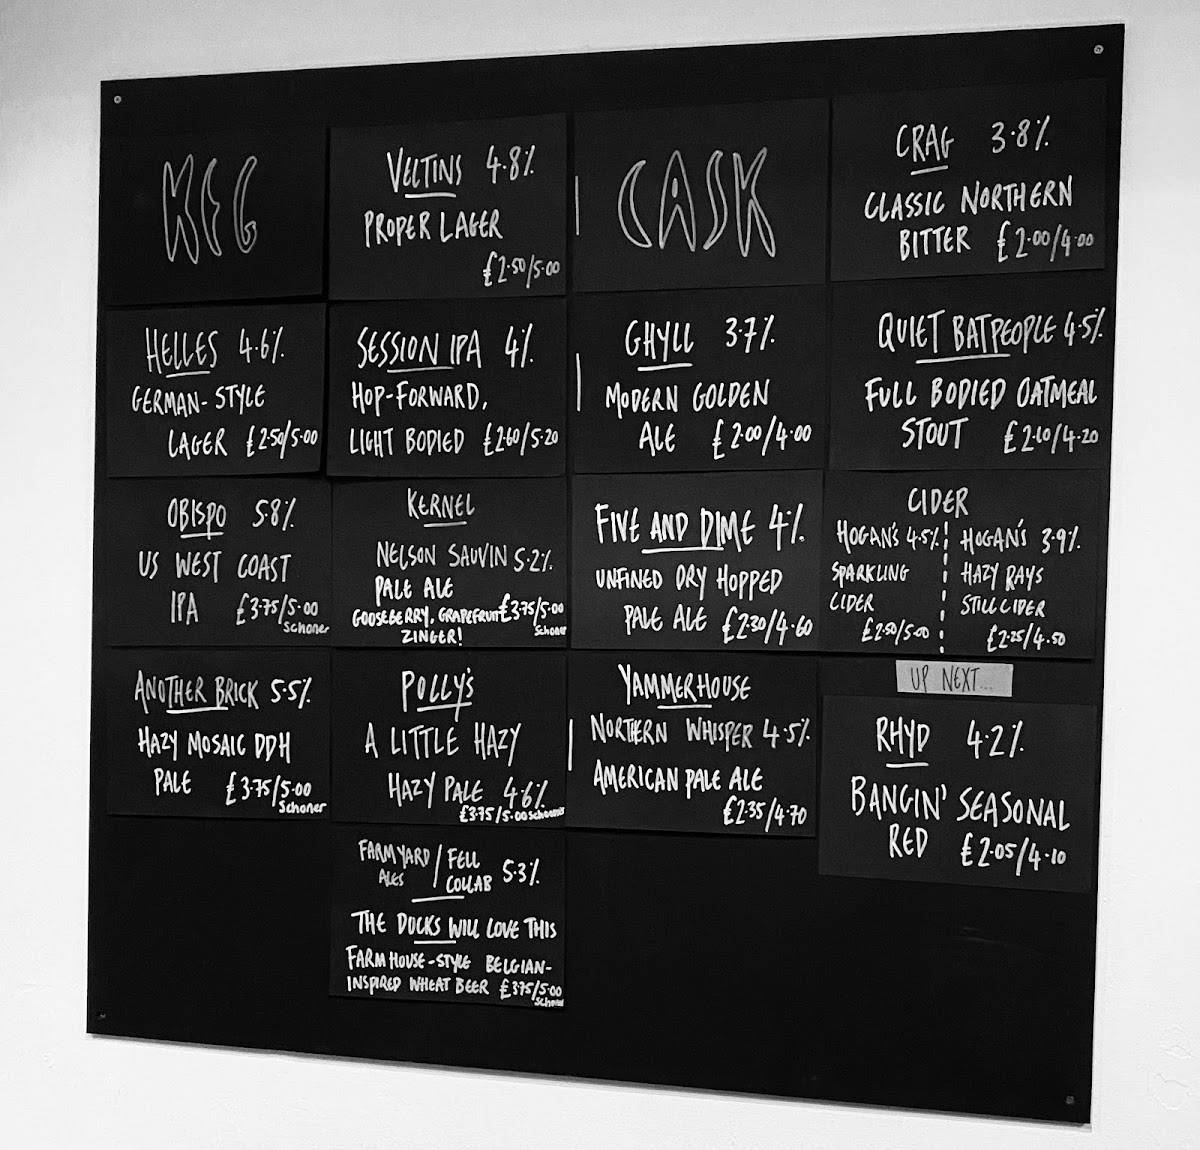 KEG
VELTINS 4.8%
PROPER LAGER
£2.50/5.00
HELLES 4.6%
GERMAN-STYLE
LAGER £2.50/5.00
SESSION IPA 4%
HOP-FORWARD,
LIGHT BODIED £2.60/5.20
OBISPO 5.8%
US WEST COAST
IPA £3.75/5.00
Schoner
KERNEL
NELSON SAUVIN 5.2%
PALE ALE
GOOSEBERRY, GRAPEFRUIT £3.75/5.00
ZINGER! Schoner
ANOTHER BRICK 5.5%
HAZY MOSAIC DDH
PALE £3.75/5.00
Schoner
POLLY'S
A LITTLE HAZY
HAZY PALE 4.6%
£3.75/5.00 schooner
FARMYARD ALES / FELL COLLAB 5.3%
THE DUCKS WILL LOVE THIS
FARMHOUSE-STYLE BELGIAN-
INSPIRED WHEAT BEER £3.75/5.00
Schoner
CASK
CRAG 3.8%
CLASSIC NORTHERN
BITTER £2.00/4.00
GHYLL 3.7%
MODERN GOLDEN
ALE £2.00/4.00
QUIET BATPEOPLE 4.5%
FULL BODIED OATMEAL
STOUT £2.10/4.20
FIVE AND DIME 4%
UNFINED DRY HOPPED
PALE ALE £2.30/4.60
CIDER
HOGAN'S 4.5%
SPARKLING
CIDER
£2.50/5.00
HOGAN'S 3.9%
HAZY RAYS
STILL CIDER
£2.25/4.50
YAMMERHOUSE
NORTHERN WHISPER 4.5%
AMERICAN PALE ALE
£2.35/4.70
UP NEXT...
RHYD 4.2%
BANGIN' SEASONAL
RED £2.05/4.10